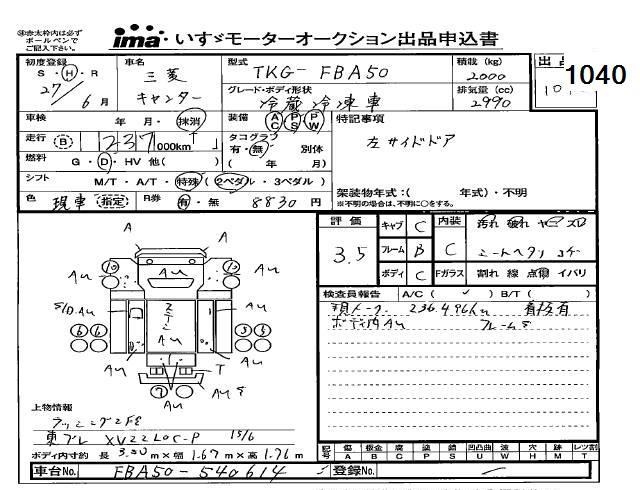 ※赤太枠内は必ず ボールペンで ご記入下さい。
ima いすゞモーターオークション出品申込書
1040
初度登録 S・H・R 27/6月
車名 三菱 キャンター
型式 TKG-FBA50
積載(kg) 2000
グレード・ボディ形状 冷蔵冷凍車
排気量(cc) 2990
車検 年 月・抹消
装備 AC PS PW
特記事項
左サイドドア
走行 (B) 237,000km
タコグラフ 有・無 別体 ( 年 月)
燃料 G・D・HV 他( )
シフト M/T・A/T・特殊(2ペダル・3ペダル)
架装物年式:( 年式)・不明
※不明の場合は、不明に○をする。
色 現車(指定) R券 有・無 8830円
評価 3.5
キャブ C 内装 C 汚れ 破れ ヤニ ズロ
フレーム B シートヘタリ コゲ
ボディ C Fガラス 割れ 線 点傷 イバリ
検査員報告 A/C( ✓ ) B/T( )
現メーター 236,496km
ボディ内AU フレームS
A
A
AU
10
10
AU
AU
AU
S/D.AU
AU
6 6
5 5
AU
AU
T
7
AU S
AU
上物情報
東プレ XV22LOC-P 15/6
ボディ内寸約 長 3.50m×幅 1.67m×高 1.76m
記号 傷A 板金B 腐C 塗P 錆S 凹凸凸曲U 波W 穴H 跡M レッツ割T
車台No. FBA50-540614 登録No. —